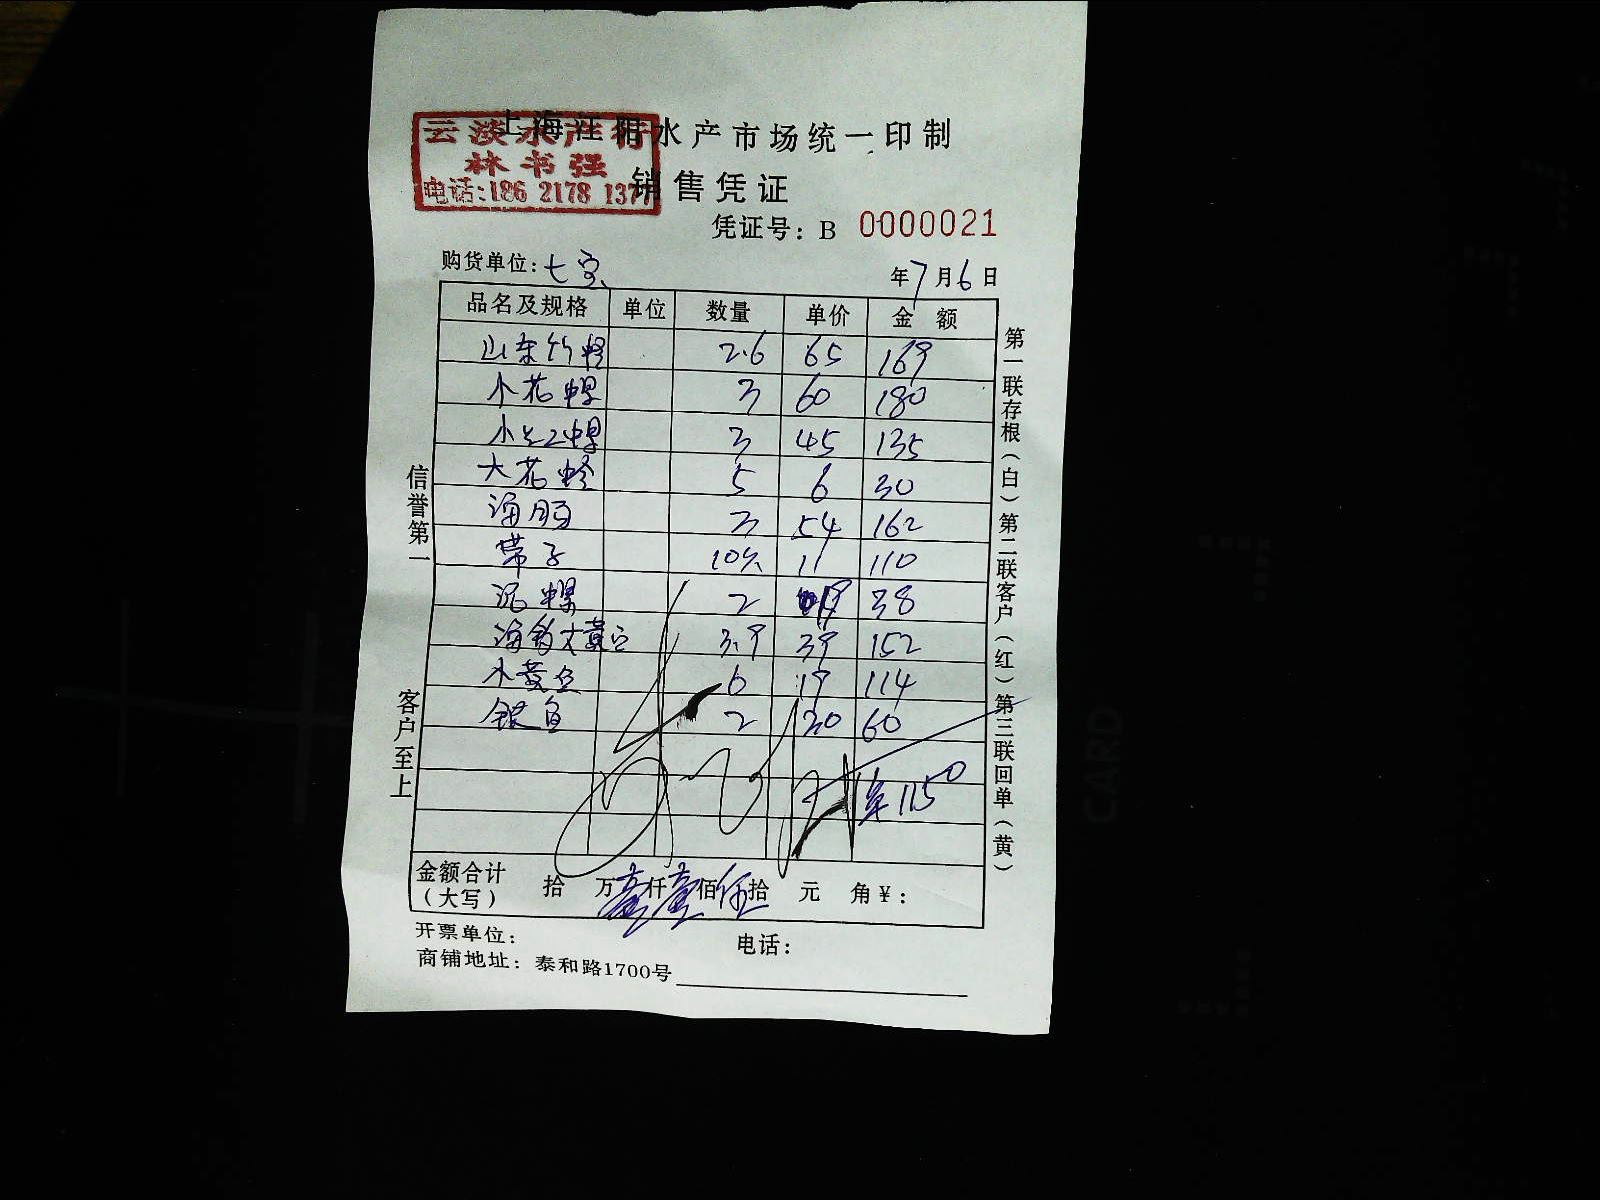 上海江阳水产市场统一印制
云淡水产行
林书强
电话:186 2178 1377
销售凭证
凭证号: B 0000021
购货单位: 七宝 年7月6日
品名及规格 单位 数量 单价 金额
山东竹蛏 2.6 65 169
小花螺 3 60 180
小红螺 3 45 135
大花蛤 5 6 30
海肠 3 54 162
带子 10个 11 110
泥螺 2 19 38
海钓大黄鱼 3.9 39 152
小黄鱼 6 19 114
银鱼 2 30 60
1150
金额合计(大写) 拾 万壹仟壹佰伍拾 元 角¥:
开票单位: 电话:
商铺地址: 泰和路1700号
信誉第一
客户至上
第一联存根(白)第二联客户(红)第三联回单(黄)
CARD